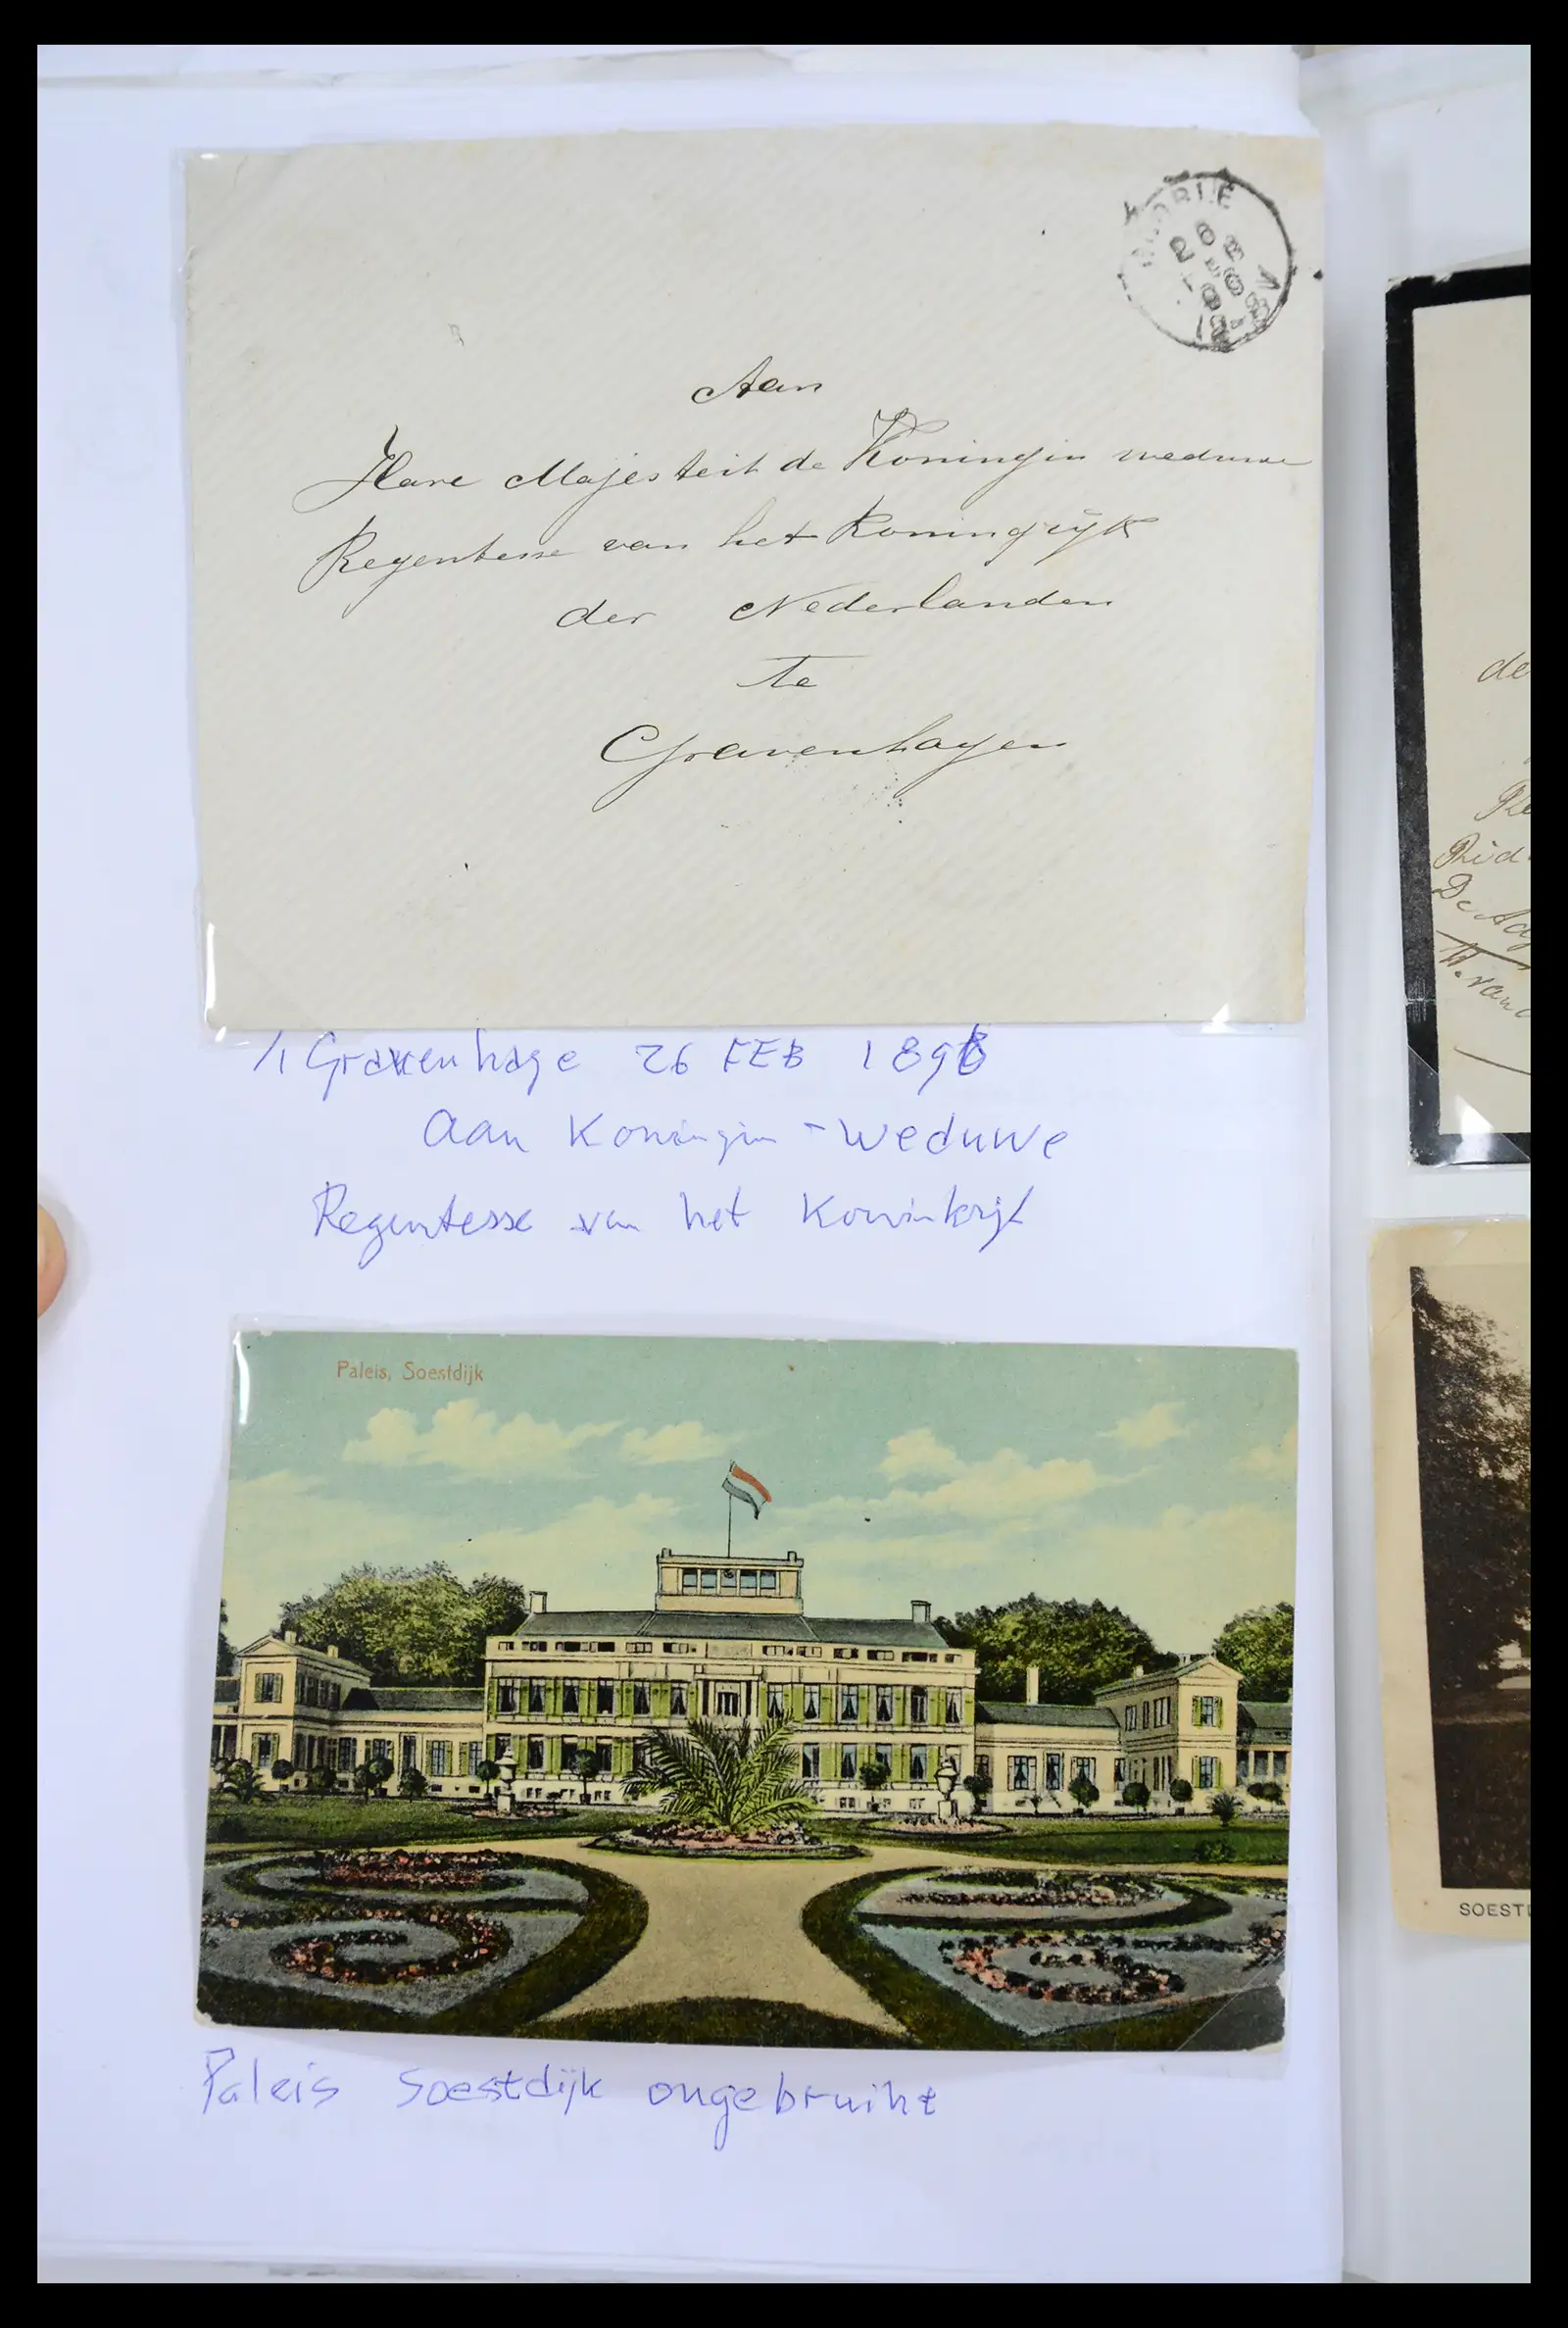 Aan
Hare Majesteit de Koningin weduwe
Regentesse van het Koningrijk
der Nederlanden
te
Gravenhagen
Gravenhage 26 FEB 1898
aan Koningin-weduwe
Regentesse van het Koninkrijk
Paleis, Soestdijk
Paleis Soestdijk ongebruikt
de
Rid
De Ad
W. van
SOEST